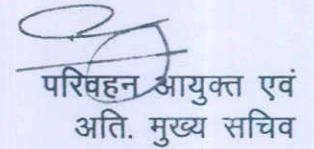 परिवहन आयुक्त एवं
अति. मुख्य सचिव